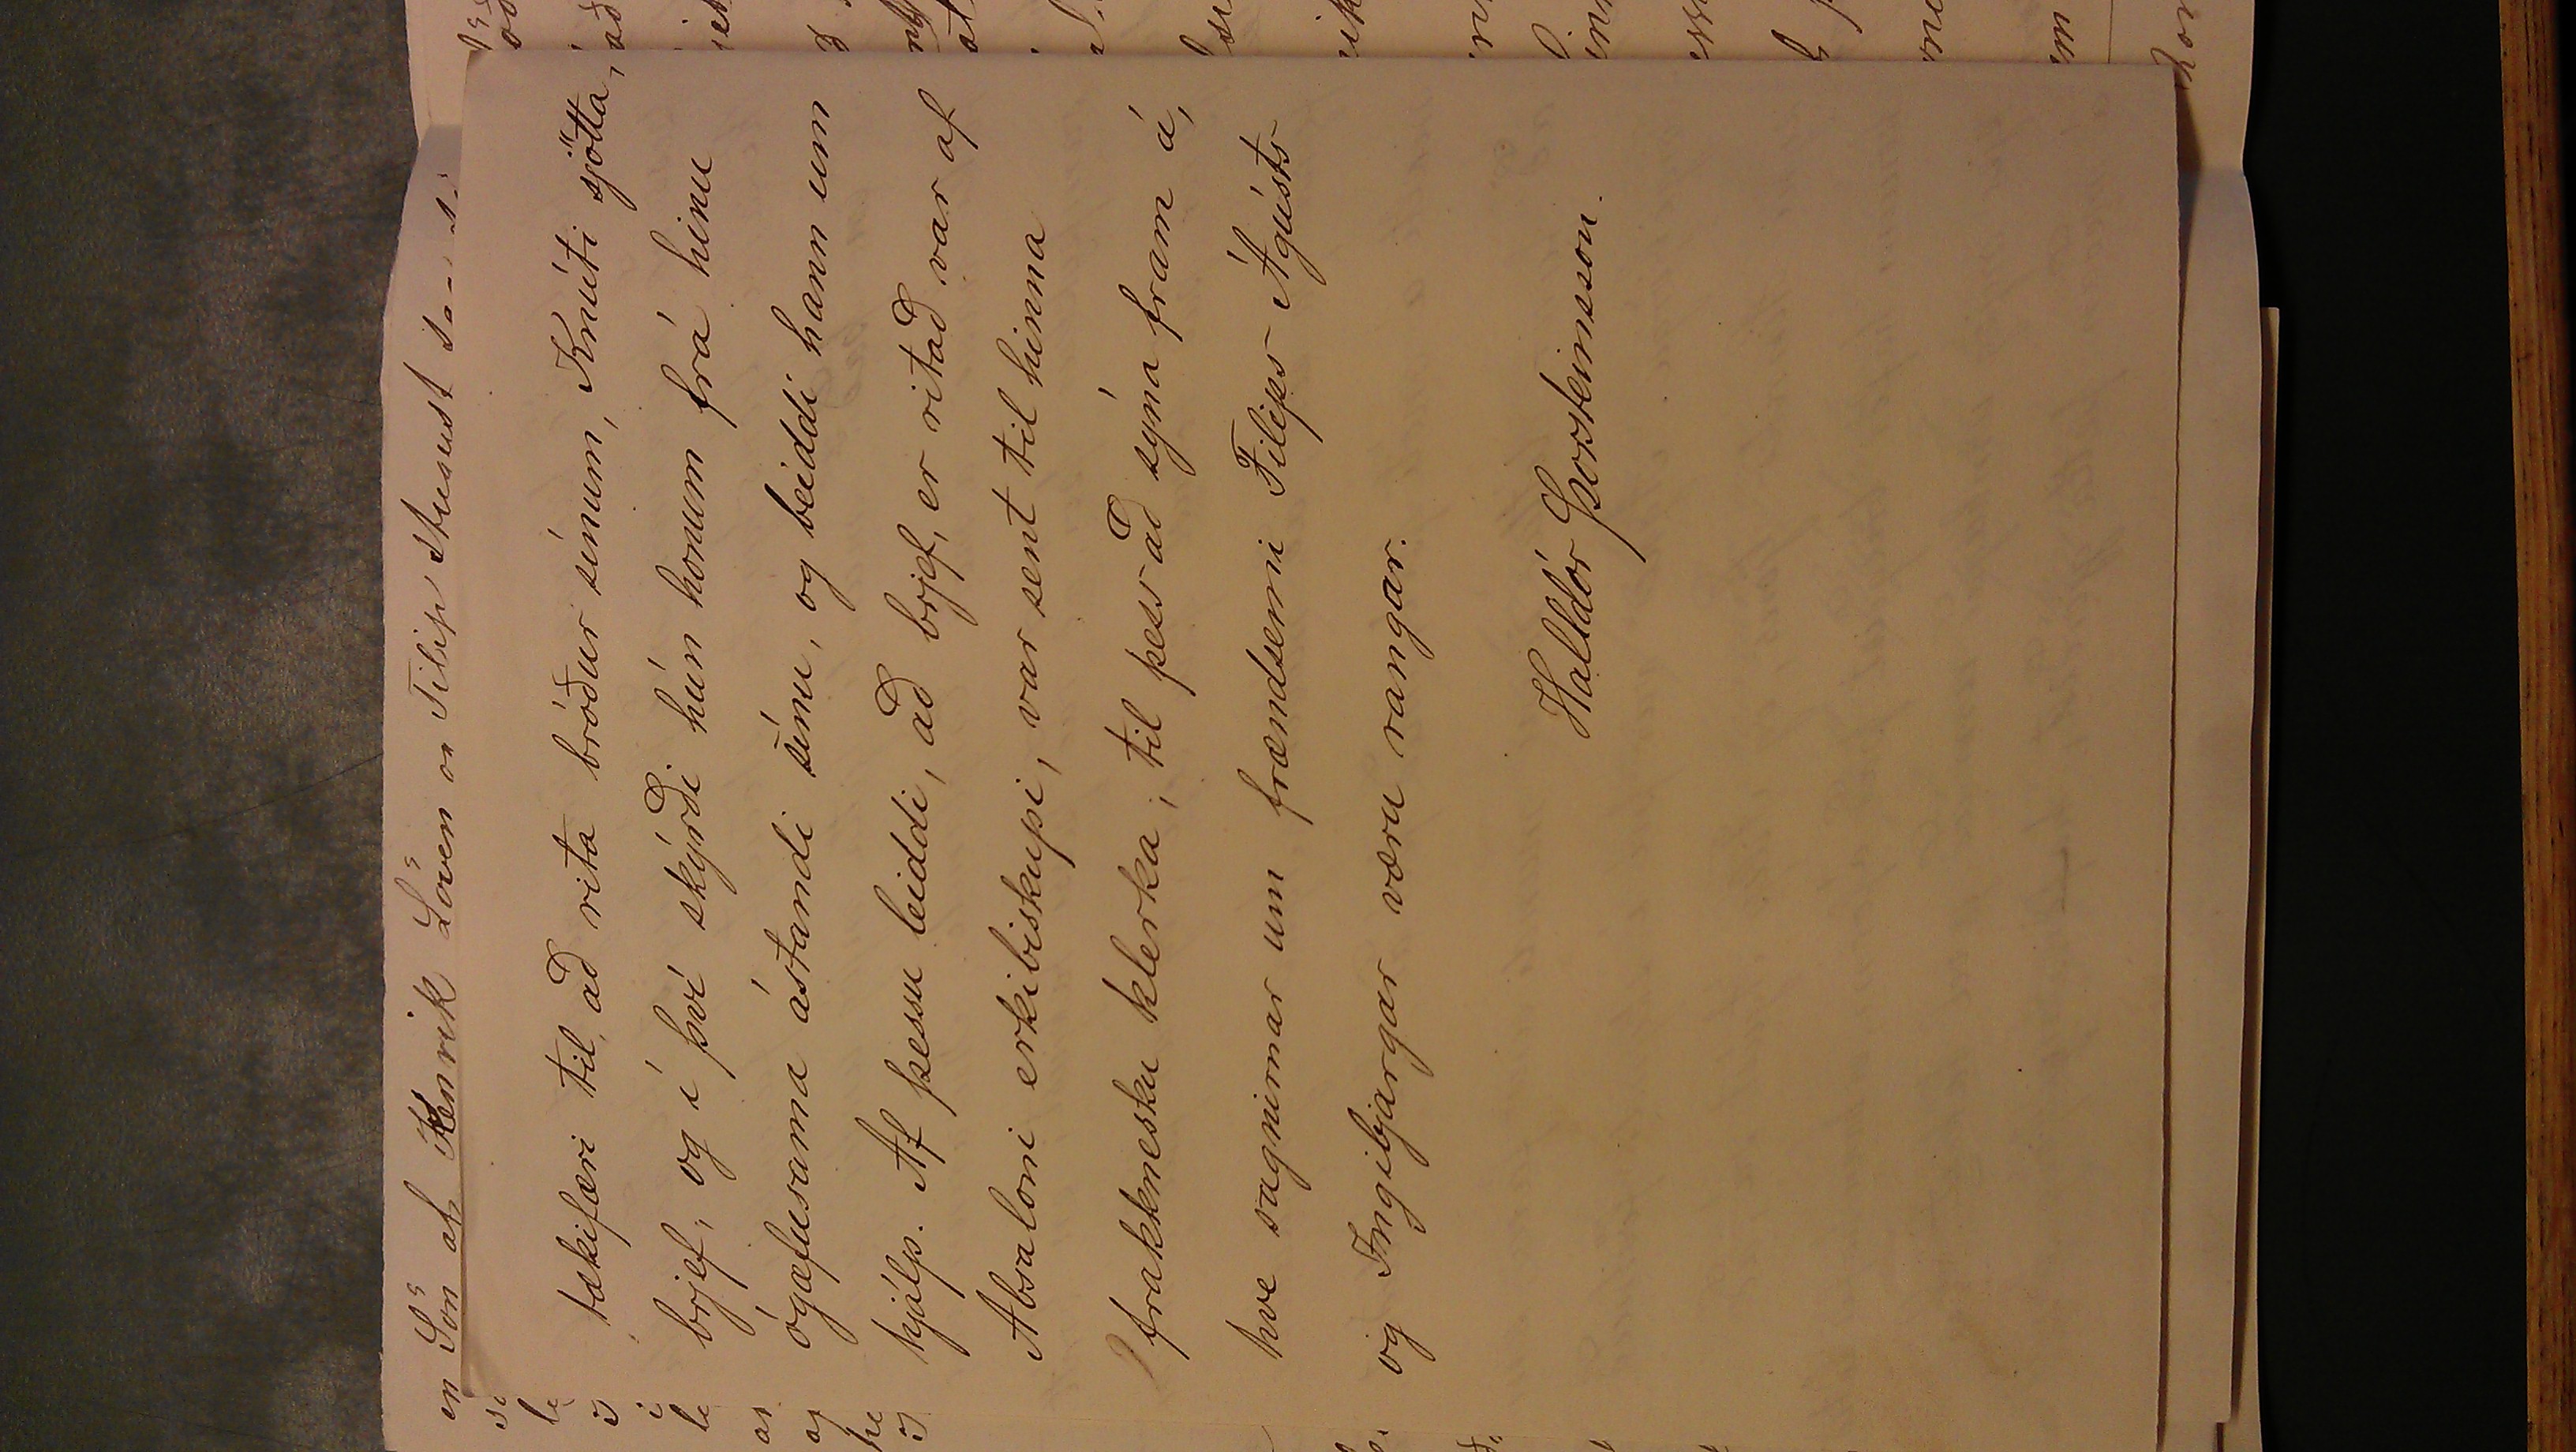 en Søn af Henrik Løven og Filip August
tækifæri til, að rita bróður sínum, Knúti sjötta,
brjef, og í því skýrði hún honum frá hinu
ógæfusama ástandi sínu, og beiddi hann um
hjálp. Af þessu leiddi, að brjef, er ritað var af
Absaloni erkibiskupi, var sent til hinna
frakknesku klerka, til þess að sýna fram á,
hve sagnirnar um frændsemi Filips Ágústs
og Ingibjargar væru rangar.
Halldór Þorsteinsson.